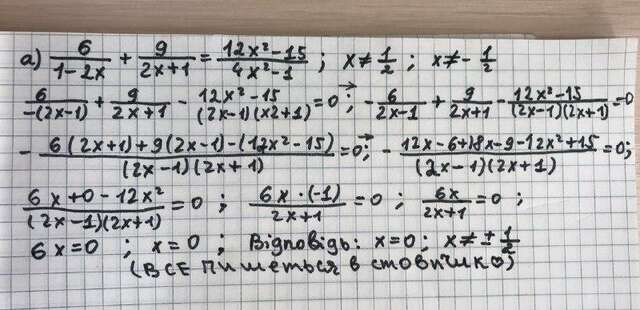 а) 6/(1-2x) + 9/(2x+1) = (12x²-15)/(4x²-1) ; x≠1/2 ; x≠-1/2
6/(-(2x-1)) + 9/(2x+1) - (12x²-15)/((2x-1)(x2+1)) = 0 ; → -6/(2x-1) + 9/(2x+1) - (12x²-15)/((2x-1)(2x+1)) = 0
- (6(2x+1)+9(2x-1)-(12x²-15))/((2x-1)(2x+1)) = 0; → - (12x-6+18x-9-12x²+15)/((2x-1)(2x+1)) = 0;
(6x+0-12x²)/((2x-1)(2x+1)) = 0 ; (6x·(-1))/(2x+1) = 0 ; 6x/(2x+1) = 0 ;
6x=0 ; x=0 ; Відповідь: x=0; x≠±1/2
(ВСЕ пишеться в стовпчико)